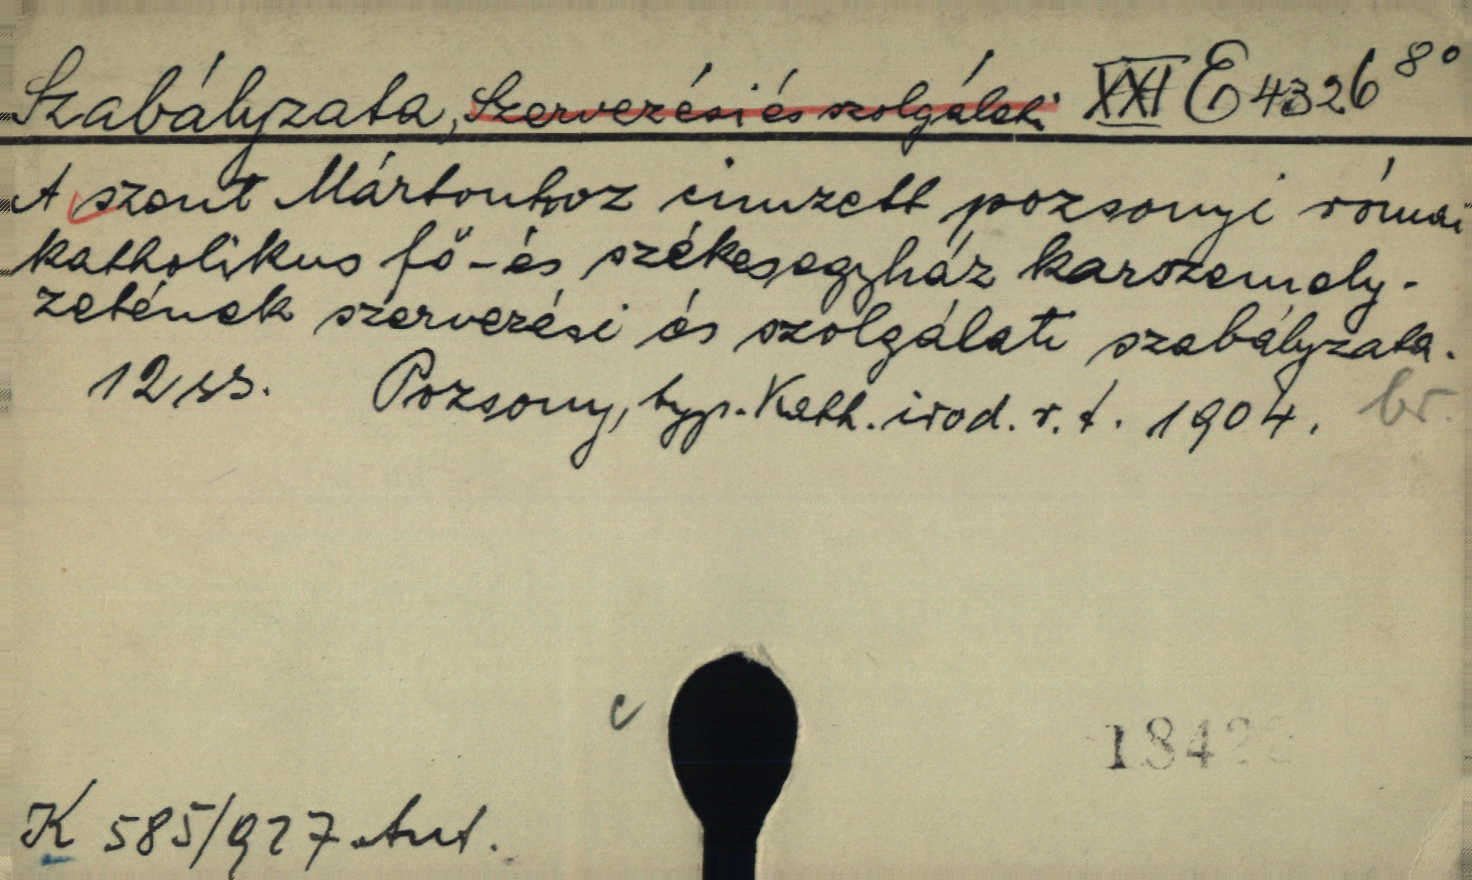 Szabályzata, Szervezési és szolgálati XXI E 4326 8°
A szent Mártonhoz cimzett pozsonyi római
katholikus fő- és székesegyház karszemély-
zetének szervezési és szolgálati szabályzata.
12 ss. Pozsony, typ. Kath. irod. r. t. 1904. br.
c
K 585/927 Ant.